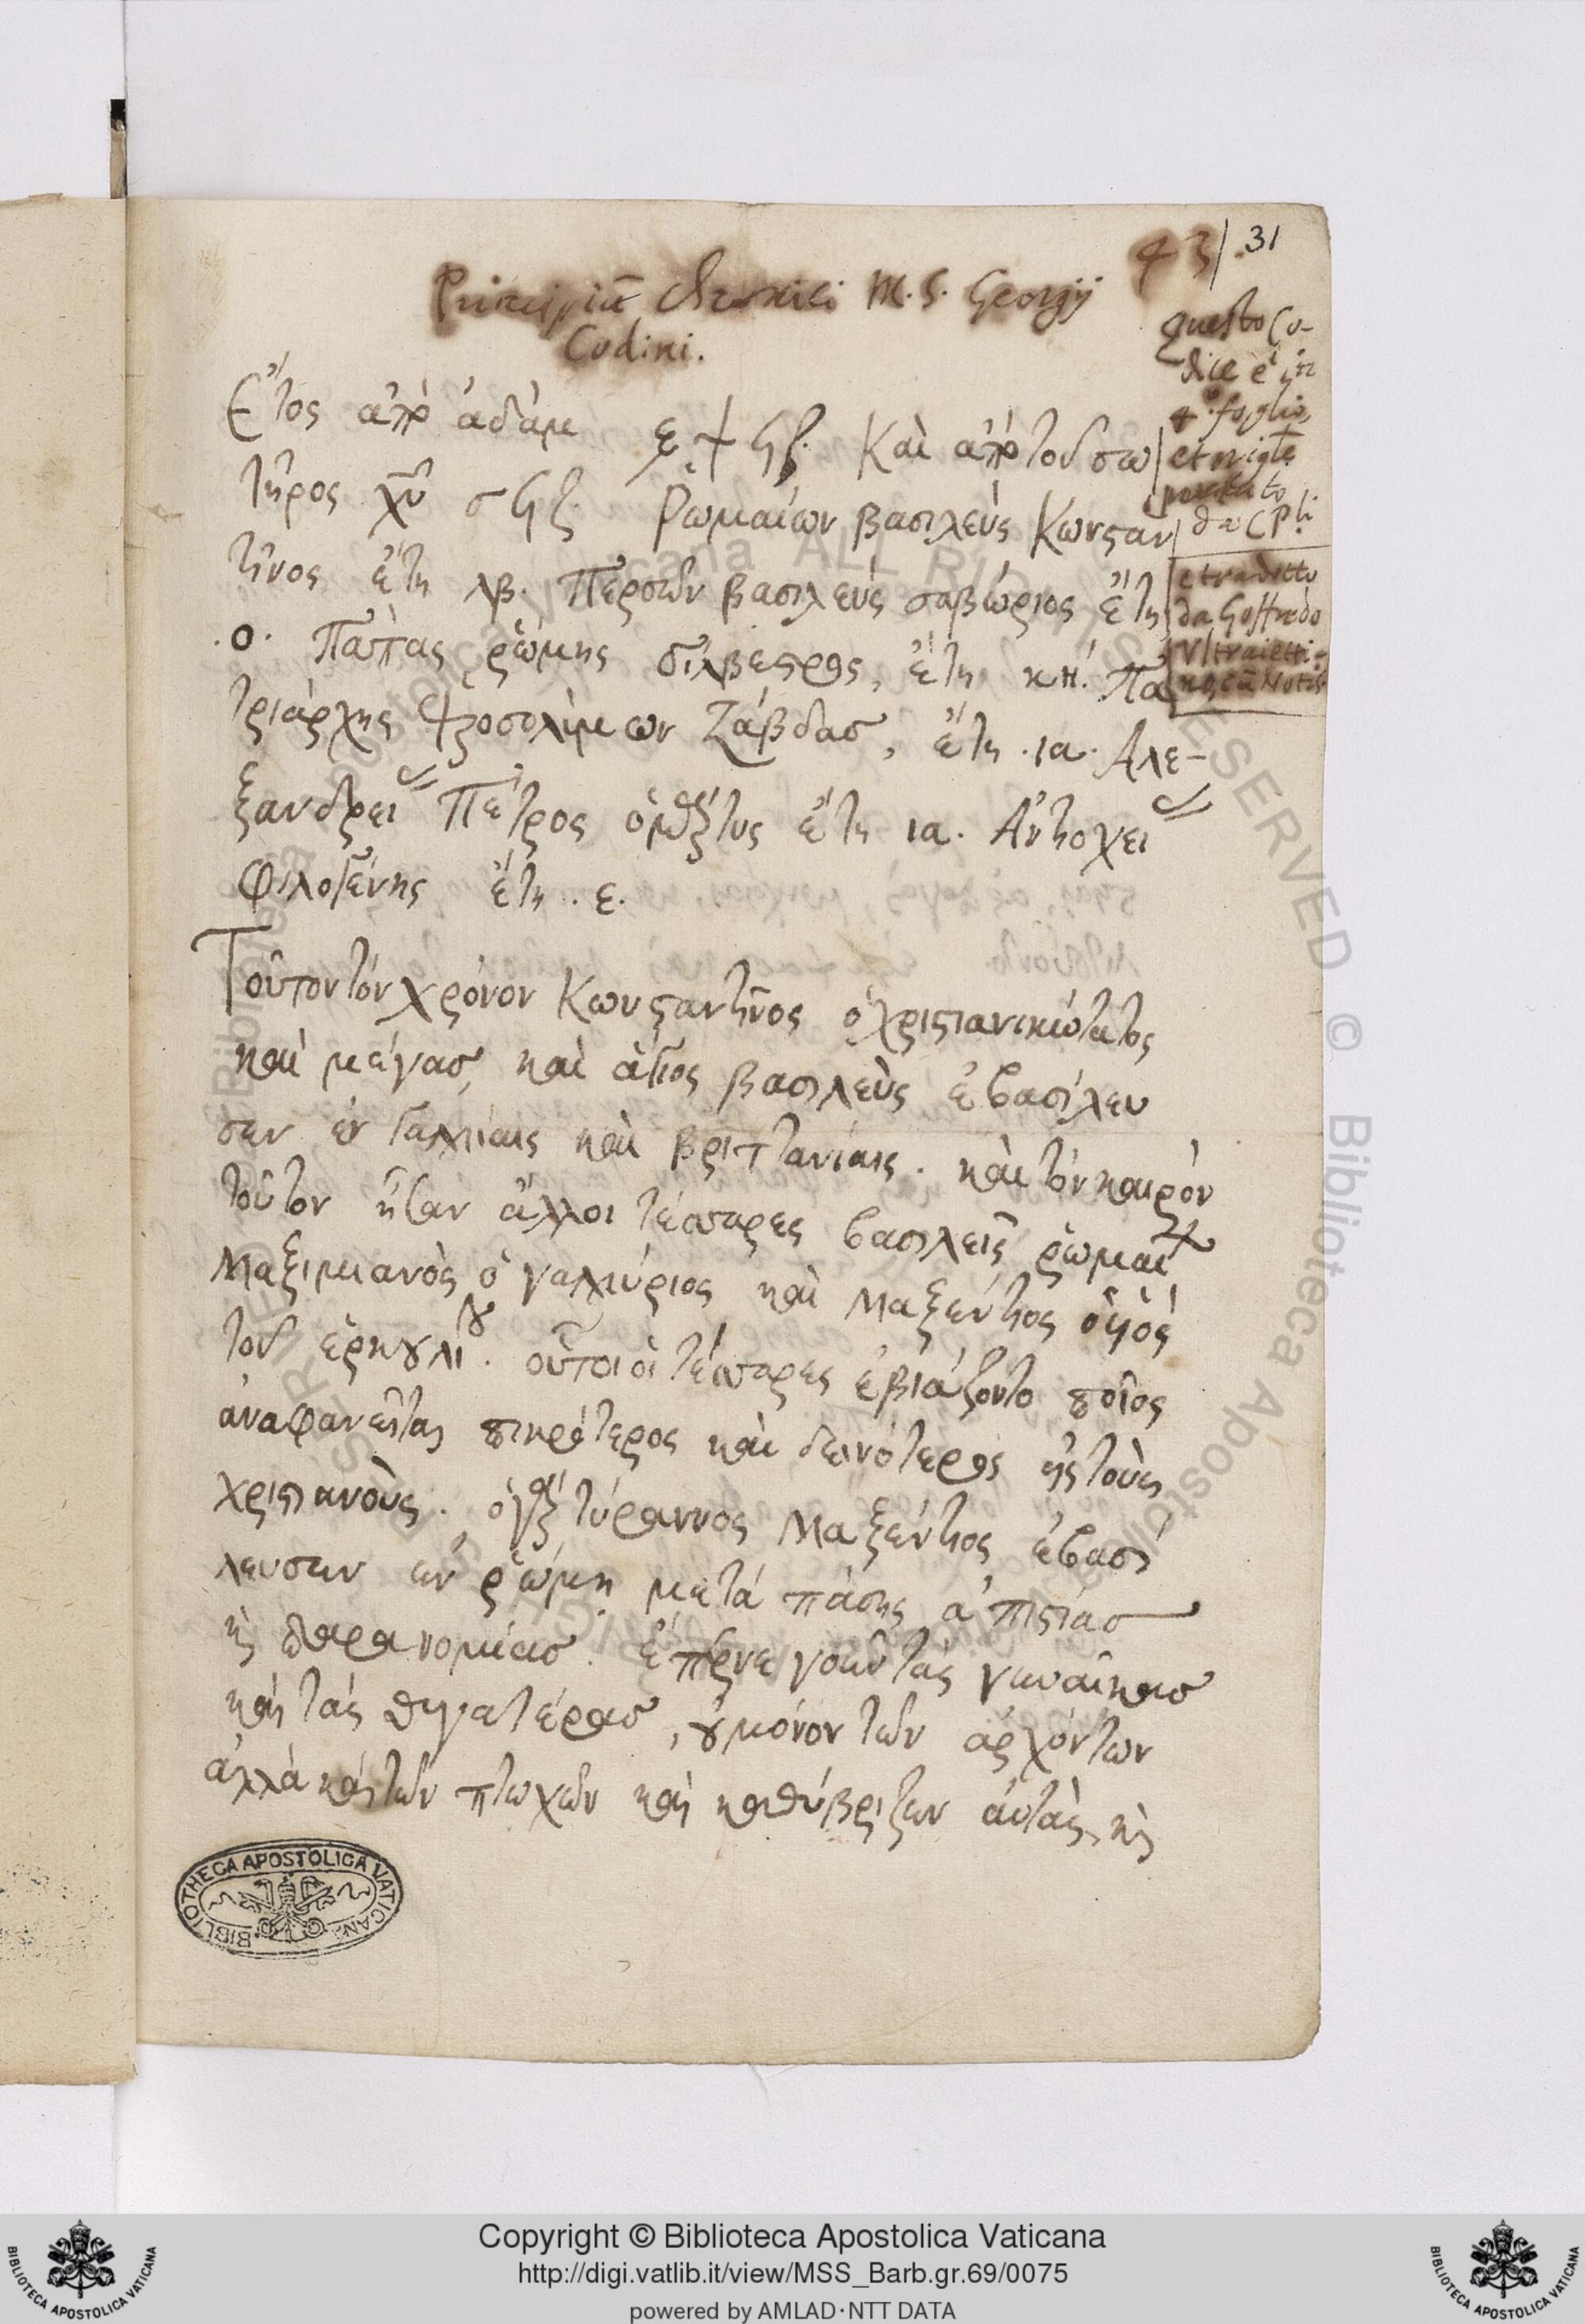 43/.31
Principiũ Chronici M.S. Georgij
Codini.
Questo Co-
dice è in
4º. foglio,
et origle
portato
da CPli.
e tradotto
da Goffredo
Vltraietti-
no, cũ Notis
Ἔτος ἀπὸ ἀδὰμ ͵εψϟζ. Καὶ ἀπὸ τοῦ σω
τῆρος χῦ σϟζ. Ῥωμαίων βασιλεύς Κωνσταν
τῖνος ἔτη λβ. Περσῶν βασιλεύς σαβώριος ἔτη
.ο. Πάπας ῥώμης σίλβεστρος, ἔτη κη. Πα
τριάρχης Ἱεροσολύμων Ζάβδας, ἔτη .ια. Αλε-
ξανδρείας Πέτρος ἔτη ια. Ἀντιοχείας
Φιλογένης ἔτη .ε.
Τοῦτον τόν χρόνον Κωνσταντῖνος ὁ χριστιανικώτατος
καὶ μέγας, καὶ ἅγιος βασιλεὺς ἐβασίλευ
σεν ἐν Γαλλίαις καὶ βριττανίαις. καὶ τὸν καιρόν
τοῦτον ἦσαν ἄλλοι τέσσαρες βασιλεῖς ῥωμαίων
Μαξιμιανὸς ὁ γαλλέριος καὶ Μαξέντιος ὁ ὑιός
τοῦ ἑρκουλίου. οὗτοι οἱ τέσσαρες ἐβιάζοντο ποῖος
ἀναφανεῖται πικρότερος καὶ δεινότερος εἰς τοὺς
χριστιανοὺς. ὁ τύραννος Μαξέντιος ἐβασί
λευσεν ἐν ῥώμῃ μετά πάσης ἀπιστίας
κ παρανομίας. ἔπερνε γοῦν τάς γυναῖκας
καὶ τάς θυγατέρας, ου μόνον τῶν ἀρχόντων
ἀλλὰ καὶ τῶν πτωχῶν καὶ καθύβριζεν ἀυτάς, κ
BIBLIOTHECA APOSTOLICA VATICANA
Copyright © Biblioteca Apostolica Vaticana
http://digi.vatlib.it/view/MSS_Barb.gr.69/0075
powered by AMLAD·NTT DATA